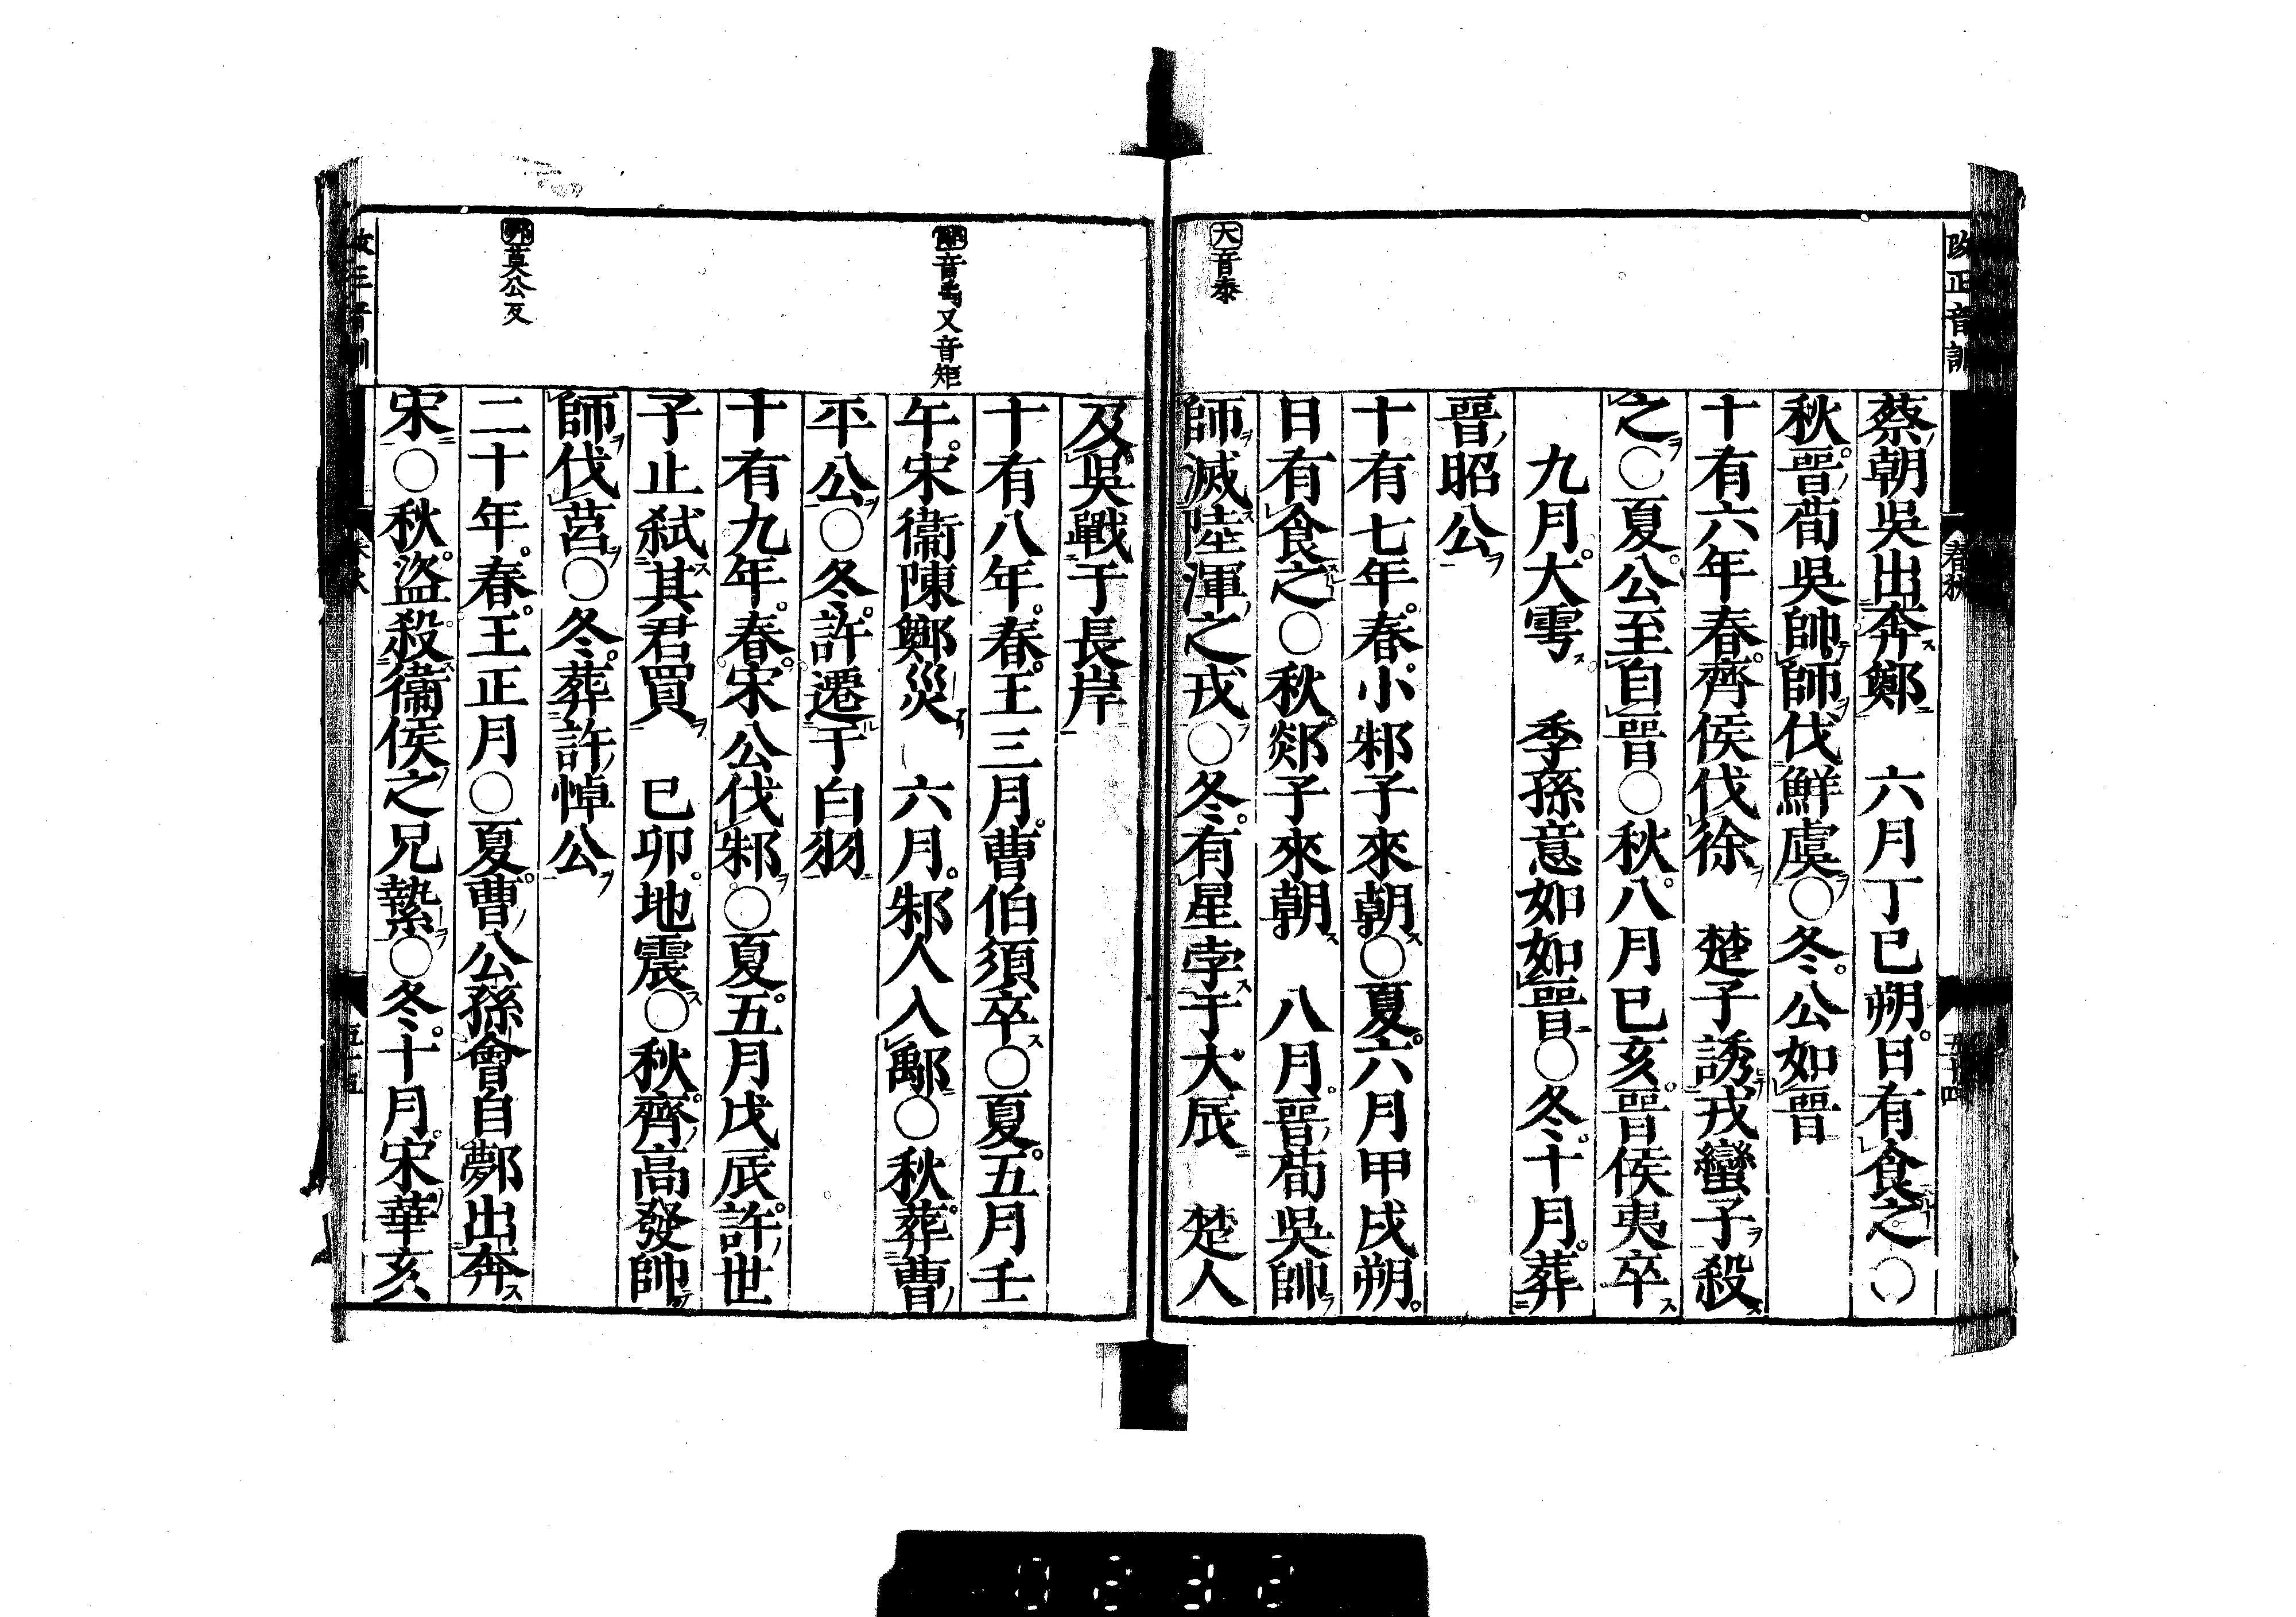 改正音訓
春秋
五十四
大音泰
蔡朝吳出奔鄭　六月丁巳朔日有食之○
秋晉荀吳帥師伐鮮虞○冬公如晉
十有六年春齊侯伐徐　楚子誘戎蠻子殺
之○夏公至自晉○秋八月己亥晉侯夷卒
九月大雩　季孫意如如晉○冬十月葬
晉昭公
十有七年春小邾子來朝○夏六月甲戌朔
日有食之○秋郯子來朝　八月晉荀吳帥
師滅陸渾之戎○冬有星孛于大辰　楚人
鄅音禹又音矩
鄸莫公反
及吳戰于長岸
十有八年春王三月曹伯須卒○夏五月壬
午宋衞陳鄭災　六月邾人入鄅○秋葬曹
平公○冬許遷于白羽
十有九年春宋公伐邾○夏五月戊辰許世
子止弑其君買　己卯地震○秋齊高發帥
師伐莒○冬葬許悼公
二十年春王正月○夏曹公孫會自鄸出奔
宋○秋盜殺衞侯之兄縶○冬十月宋華亥